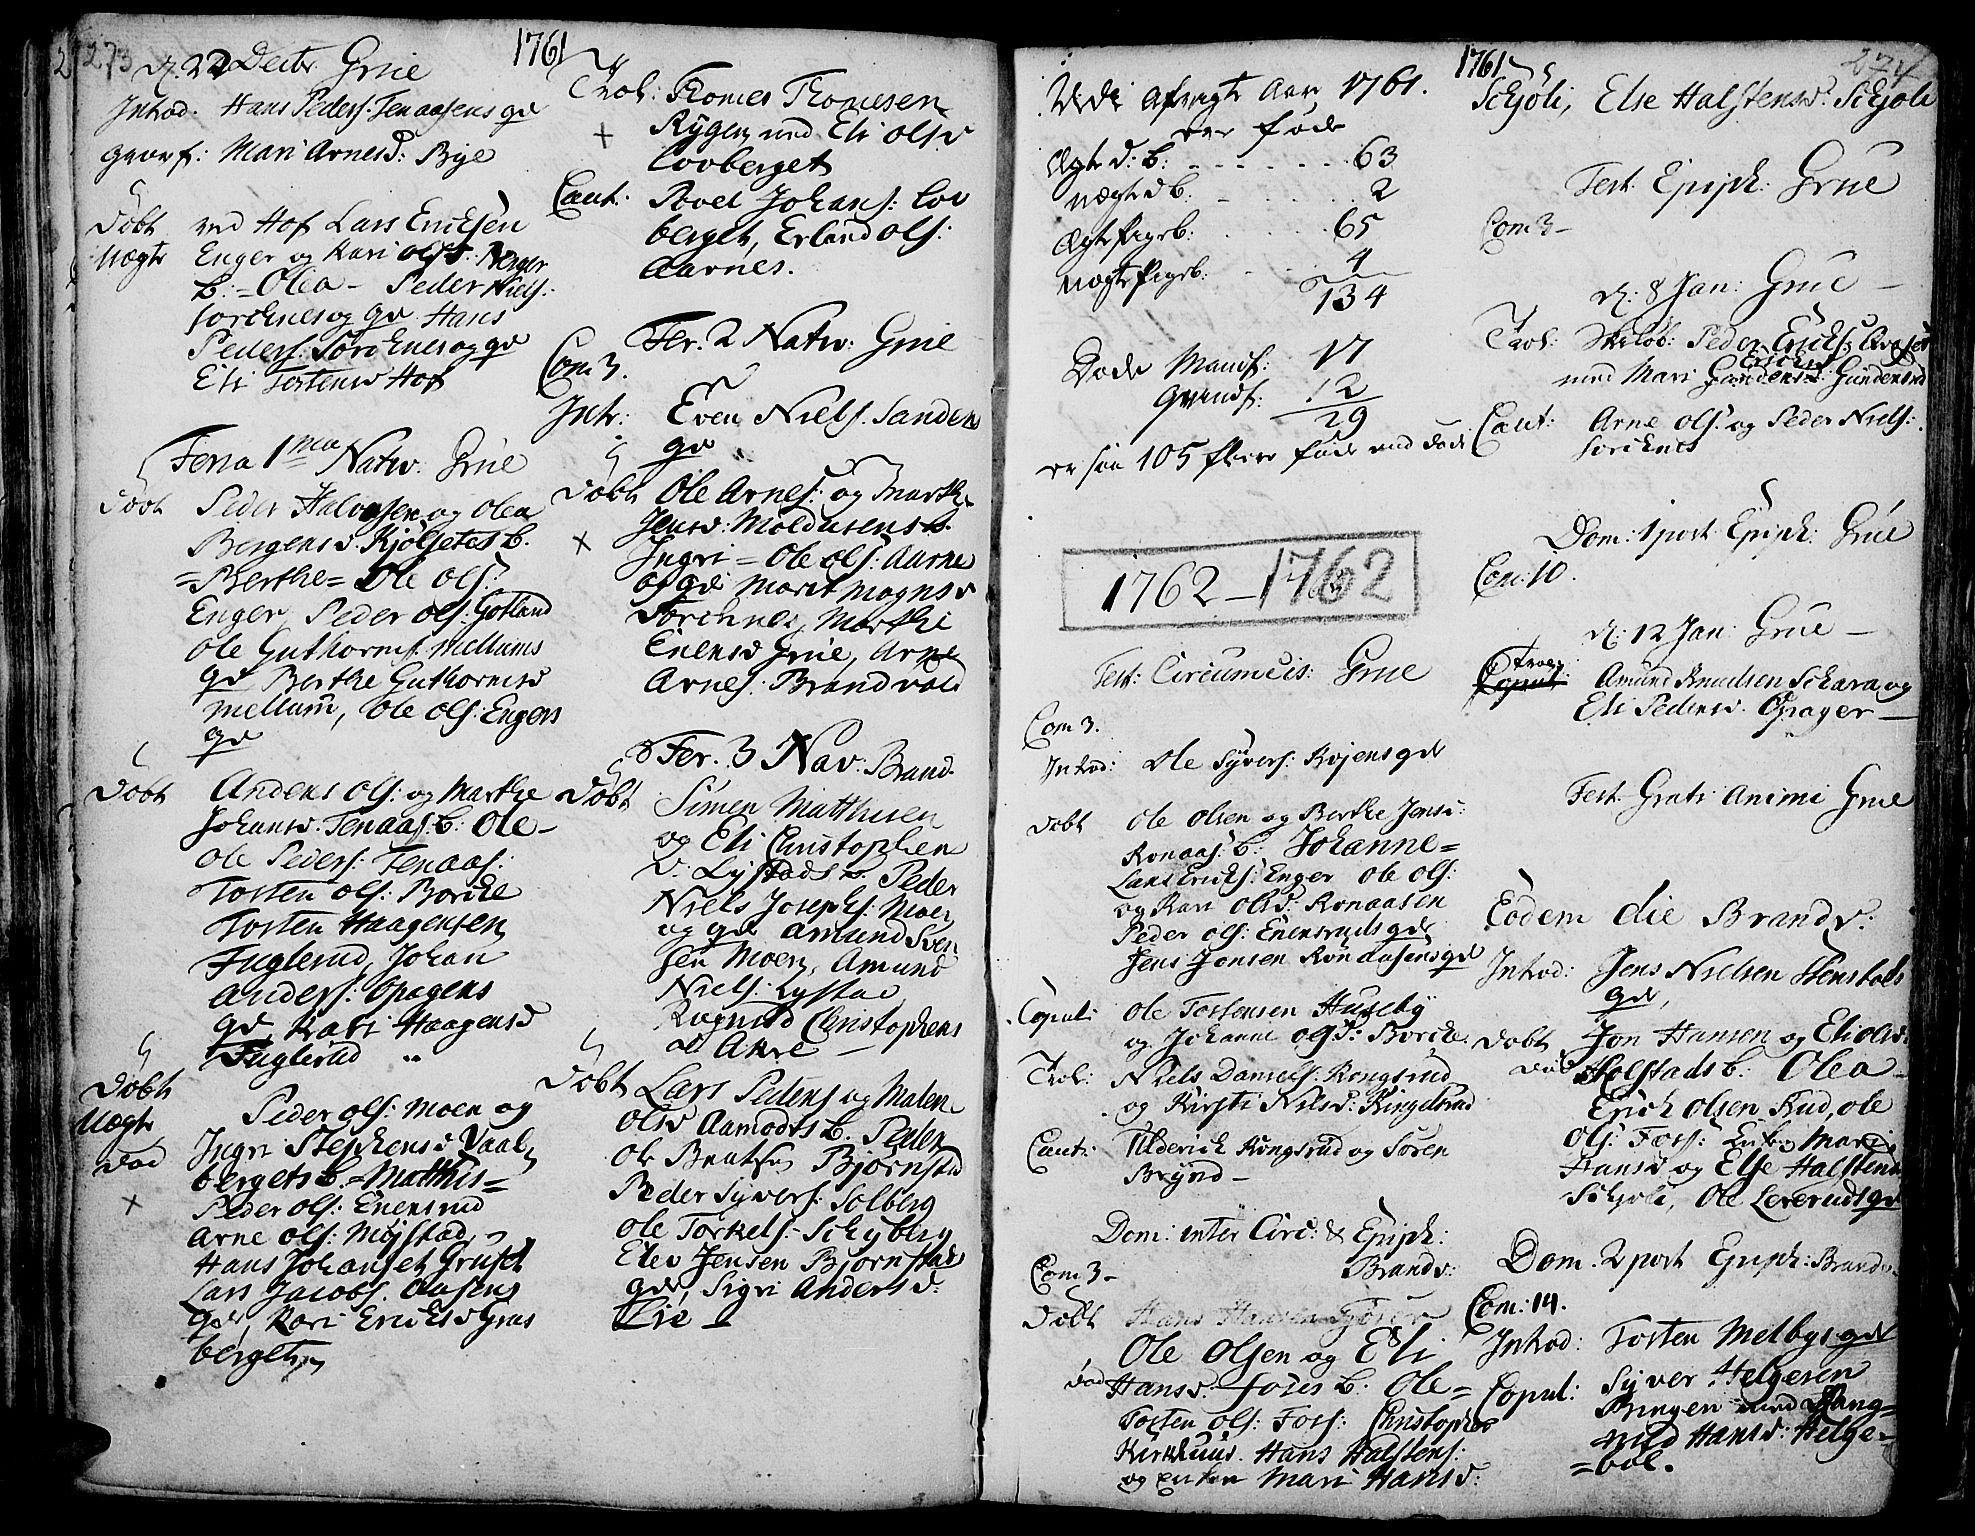 273
1761
d. 22 Decbr Grue
Introd. Hans Peders: Tenaasens qv
Mari Arnesd: Bye
Döbt ved Hof Lars Erichsen
Uægte Enger og Kari olsd:
b: = Olea - Peder Niels:
Torchnes og qv Hans
Peders: Torchnes og qv
Eli Tostensd Hof
Feria 1ma Nativ: Grue
Döbt Peder Halvorsen og Olea
Bergensd. Kjölsetes b.
= Berthe = Ole Ols:
Enger, Peder ols: Gotland
Ole Guthorms: Mellums
qv Berthe Guthormsd
Mellum, Ole ols: Engers
qv
Döbt Anders Ols: og Marthe
Johansd. Tenaas: b: Ole -
Ole Peders: Tenaas:
Tosten ols: Borche
Tosten Haagensen
Fuglerud, Johan
Anders: Opagens
qv, Kari Haagensd
Fuglerud
Döbt
Uægte Peder ols: Moen og
död Ingri Stephensd Vaal
bergets b. = Matthis =
Peder ols: Enensrud
Arne ols: Mojstad,
Hans Johanset Gruset
Lars Jacobs. Aasens
qv, Kari Ericksd Gras
berget
Trol: Thomes Thomesen
Rygen med Eli olsd
Lovberget
Caut: Povel Johans: Lov
berget, Erland ols:
Aarnes.
Fer. 2 Nativ: Grue
Com 3.
Intr: Even Niels. Sanden
qv
Döbt Ole Arnes: og Marthe
Jensd: Moldusens b.
Ingri = Ole ols: Aarne
og qv Marit Magnsd
Torchnes, Marthe
Enensd Grue, Arne
Arnes: Brandvold
Fer. 3 Nav: Brand.
Döbt Simen Matthisen
og Eli Christophen
d: Lystads b. Peder
Niels Josephs: Moen
og qv Amund Sven
sen Moen, Amund
Niels: Lystad
Rognild Christophens
d Akre -
Döbt Lars Peders og Malene
olsd Aamodts b. Peder
Ole Bentsen Björnstad
Peder Syvers: Solberg
Ole Torkels: Schyberg
Elev Jensen Björnstads
qv, Sigri Andersd:
Lie
1761
274
Aar 1761.
ere føde
ægte d: b: - - - - 63
uægte d b. - - - 2
ægte Pigeb: - - - 65
uægte Pigeb. - - - 4
134
Døde Mandk: 17
Qvindk: 12
29
er saa 105 fleere føde end døde
1762 - 1762
Fest: Circumcis: Grue
Com 3.
Introd: Ole Syvers: Rojens qv
Döbt Ole Olsen og Berthe Jensd:
Ronaas: b: Johanne =
Lars Ericks: Enger Ole ols:
og Kari olsd: Ronaasen
Peder ols: Enensruds qv
Jens Jonsen Ronaasens qv
Copul: Ole Tostensen Huseby
og Johanne olsd: Borche.
Trol: Niels Daniels: Rongsrud
og Kirsti Nilsd: Ringelsrud
Caut: Ulderich Rongsrud og Sören
Brynd -
Dom: inter Circ: & Epiph:
Brandv:
Com 3 -
Döbt
Ole Olsen og Eli
död Hansd: Foss b: Ole =
Tosten ols: Foss: Christopher
Kirkhuus. Hans Halstens:
og Mari Hansd:
Schjöli, Else Halstensd: Schjöli
Fest: Epiph: Grue
Com 3 -
d: 8 Jan: Grue -
Trol: Peder Ericks:
Ericksd
med Mari Gundersd: Gundersrud
Caut: Arne ols: og Peder Niels:
Torchnes
Dom: 1 post Epiph: Grue
Com: 10.
d: 12 Jan: Grue -
Trol:
Copul: Amund Knudsen Schara og
Eli Pedersd. Opager -
Fest. Grati Animi Grue
Eodem die Brandv:
Introd: Jens Nielsen Stenstads
qv,
Döbt Jon Hansen og Eli olsd:
död Holstads b: Olea -
Erich Olsen Rud, Ole
Ols: Foss: Mari
Hansd og Else Halstensd
Schjöli, Ole Levernds qv
Dom. 2 post Epiph: Brandv.
Com: 14.
Introd: Tosten Melbys qv
Copul: Syver Helgesen
Bringen med Rang=
nild Hansd: Helge=
=bol.